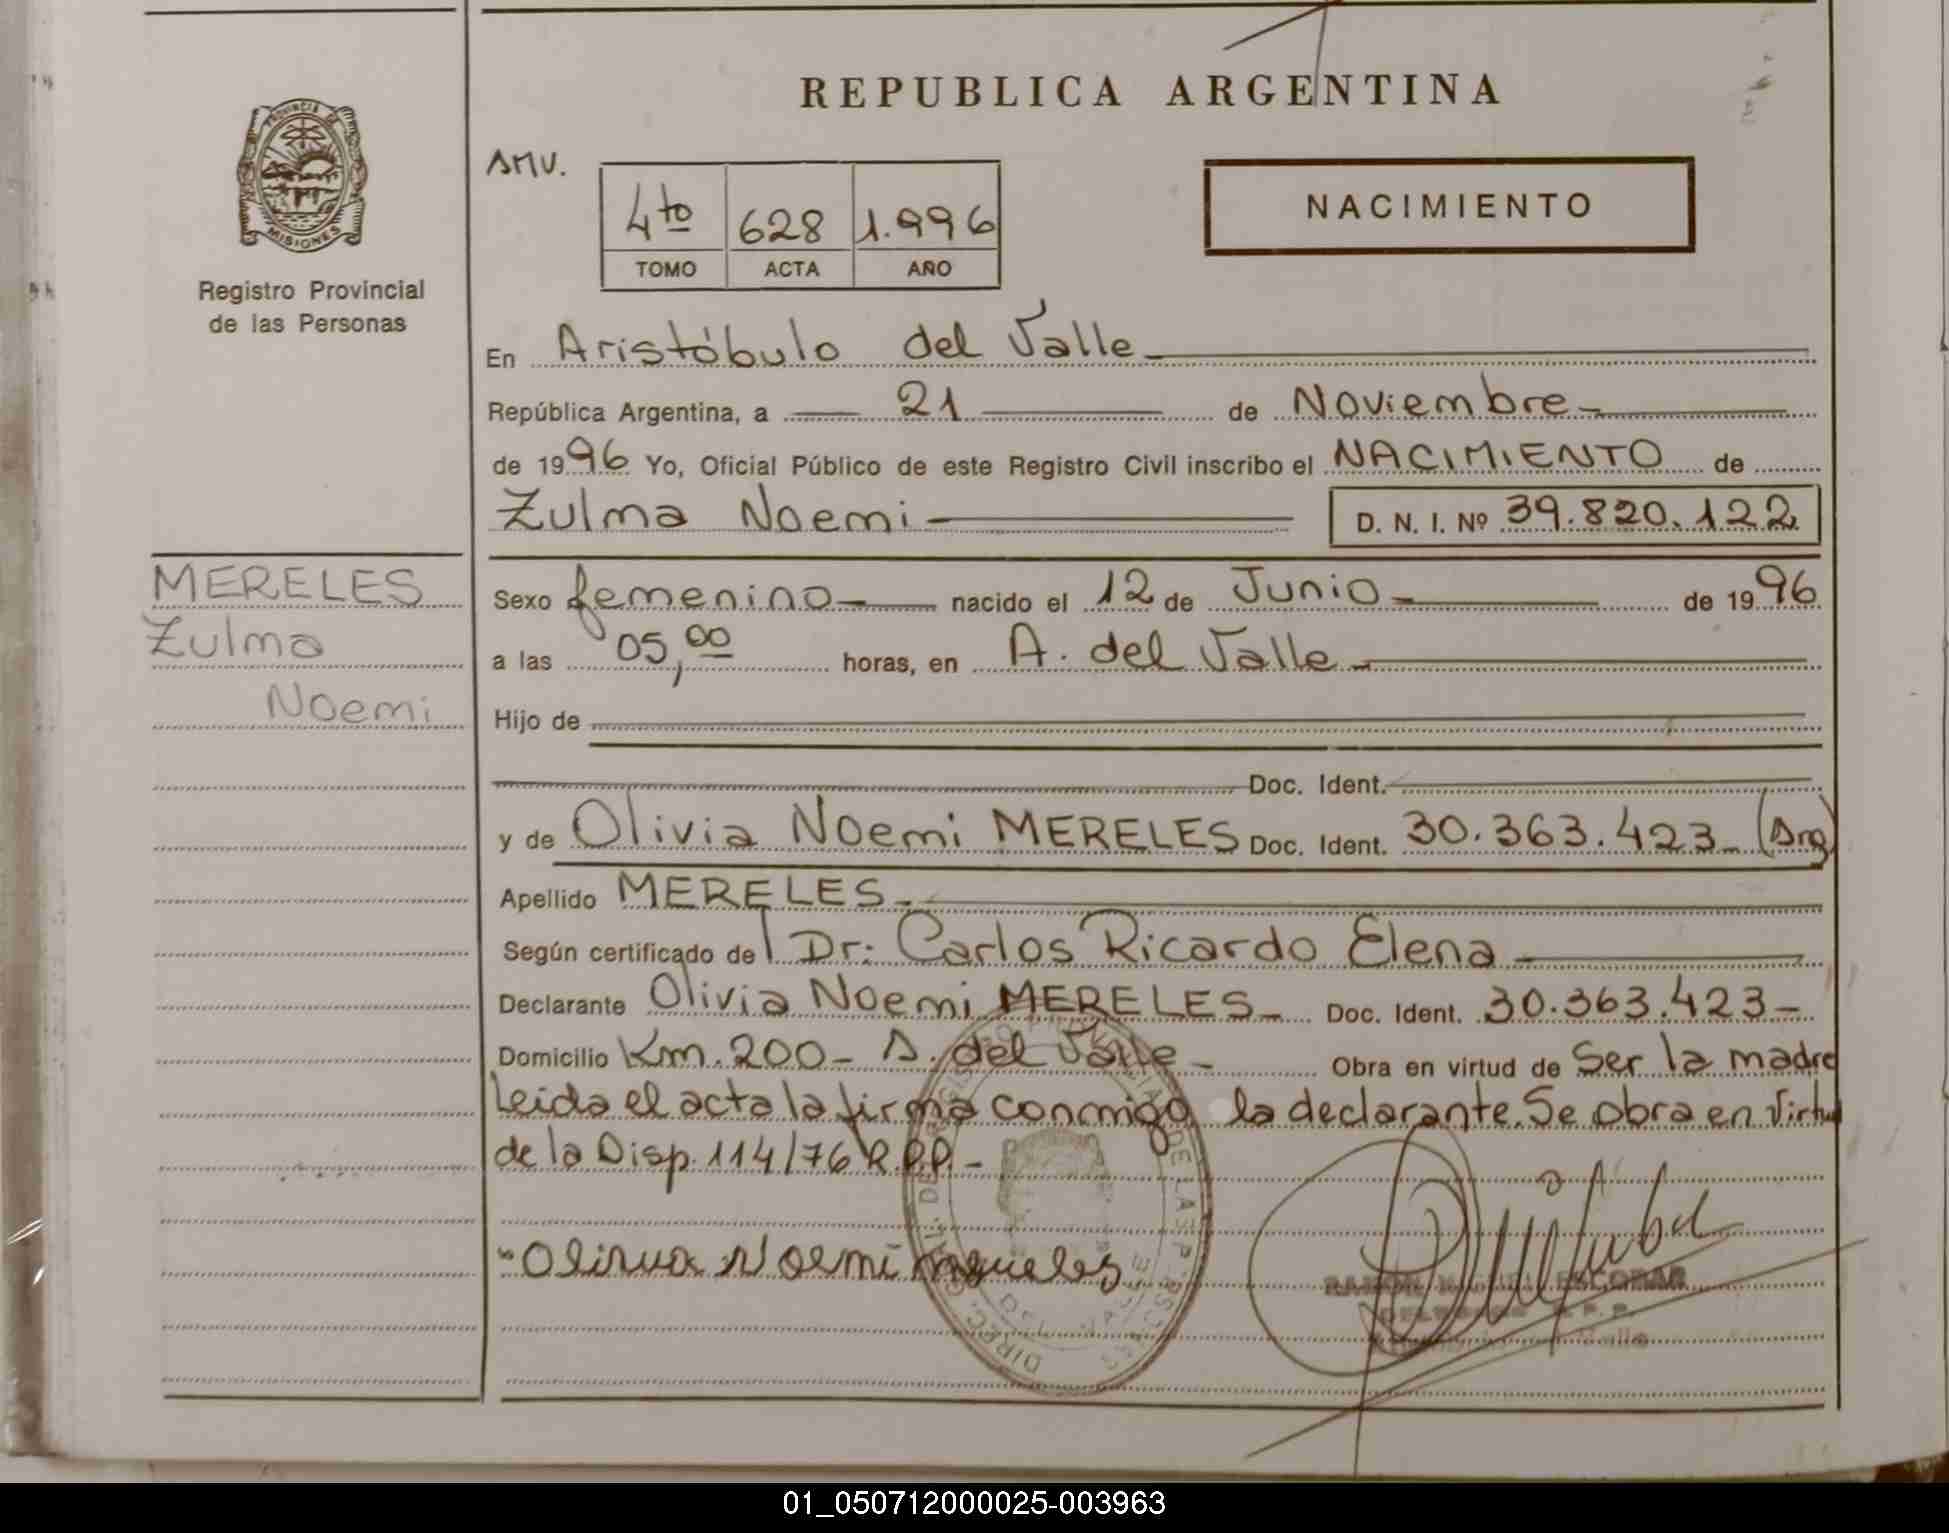 REPUBLICA ARGENTINA
PROVINCIA DE
MISIONES
Registro Provincial
de las Personas
AMV.
4to 628 1.996
TOMO ACTA AÑO
NACIMIENTO
En Aristóbulo del Valle
República Argentina, a 21 de Noviembre
de 1996 Yo, Oficial Público de este Registro Civil inscribo el NACIMIENTO de
Zulma Noemi D. N. I. Nº 39.820.122
MERELES
Zulma
Noemi
Sexo femenino nacido el 12 de Junio de 1996
a las 05,00 horas, en A. del Valle
Hijo de
Doc. Ident.
y de Olivia Noemi MERELES Doc. Ident. 30.363.423 (Arg)
Apellido MERELES
Según certificado de Dr: Carlos Ricardo Elena
Declarante Olivia Noemi MERELES Doc. Ident. 30.363.423
Domicilio Km. 200 - A. del Valle Obra en virtud de Ser la madre
Leida el acta la firma conmigo la declarante. Se obra en Virtud
de la Disp. 114/76 R.P.P. -
Olivia Noemi mereles
RAMON MIGUEL ESCOBAR
01_050712000025-003963